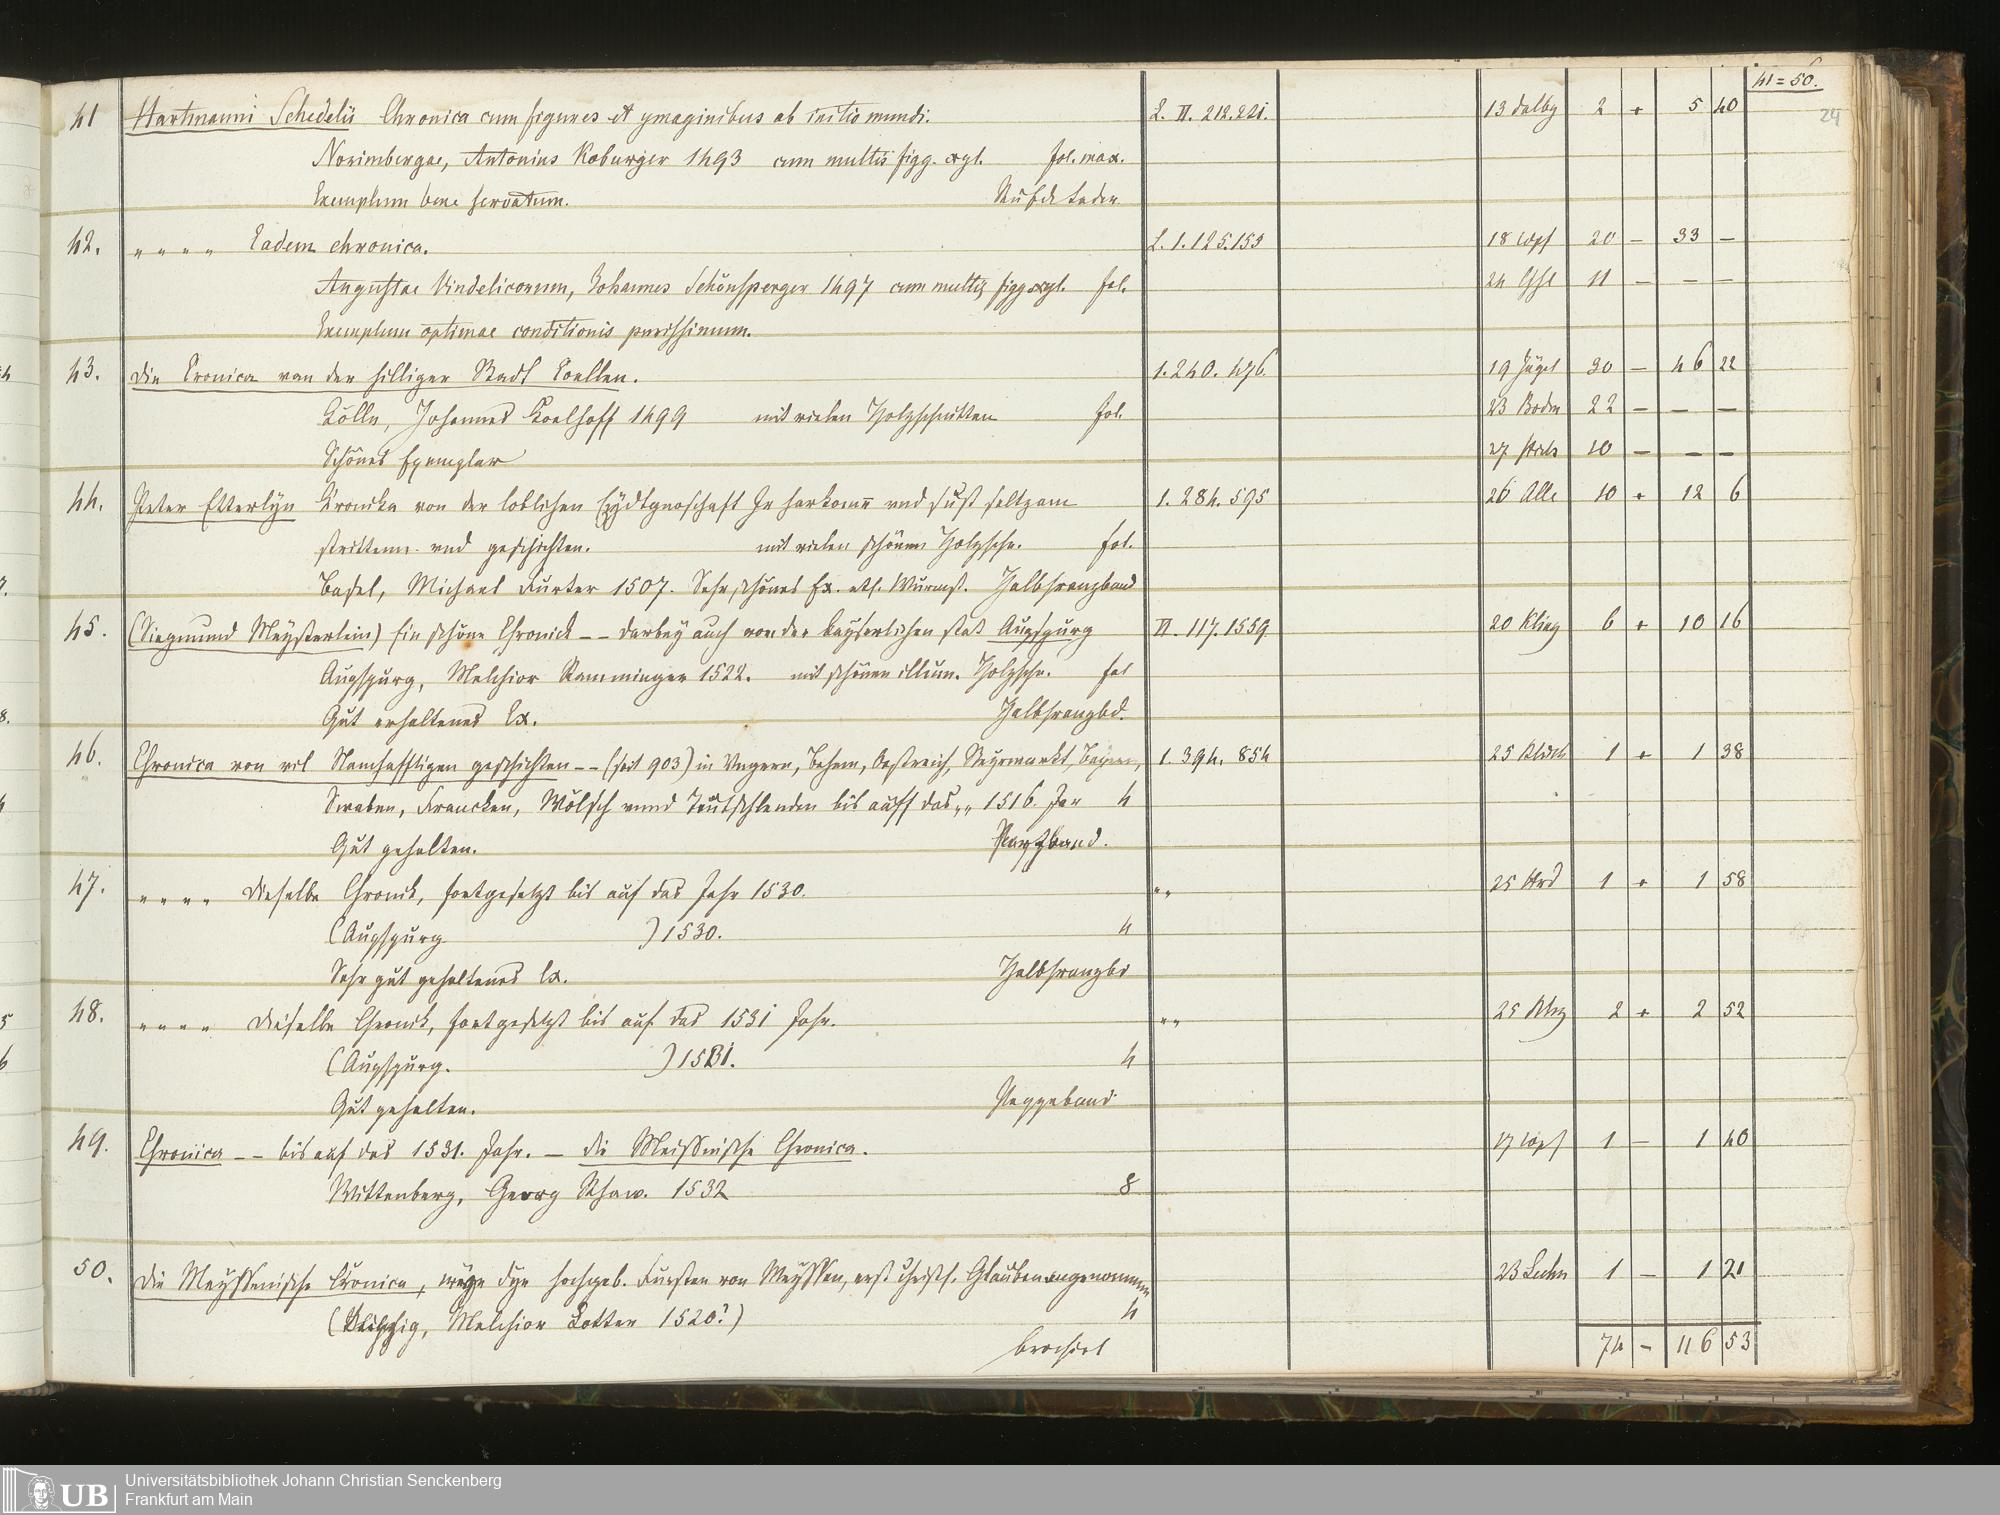 41=50.
24
41 Hartmanni Schedelii Chronica cum figures et ymaginibus ab initio mundi. L. II. 212.221. 13 Dalbg 2 + 5 40
Norimbergae, Antonius Koburger 1493 cum multis figg. xyl. fol. max.
Exemplum bene servatum. Leder
42. " " " " Eadem chronica. L. 1. 125.153 18 20 — 33 —
Augustae Vindelicorum, Johannes Schönsperger 1497 cum multis figg. xyl. fol. 24 11 — — —
Exemplum optimae conditionis purissimum.
43. Die Cronica van der hilliger Stadt Coellen. 1. 240. 476. 19 Jügel 30 — 46 22
Cölln, Johannes Koelhoff 1499 mit vielen Holzschnitten fol. 23 Bodm 22 — — —
Schönes Exemplar 27 10 — — —
44. Peter Etterlyn Kronika von der loblichen Eydtgnoschaft Jr harkomn̄ und sust seltzam 1. 284. 595 26 Alle 10 + 12 6
strittenn und geschichten. mit vielen schönen Holzschn. fol.
Basel, Michael Furter 1507. Sehr schönes Ex. etl. Wurmst. Halbfranzband
45. (Siegmund Meysterlein) Ein schöne Chronick -- darbey auch von der kayserlichen stat Augspurg II. 117. 1559 20 Kling 6 + 10 16
Augspurg, Melchior Ramminger 1522. mit schönen illum. Holzschn. fol
Gut erhaltenes Ex. Halbfranzbd.
46. Chronica von vil Namhafftigen geschichten -- (seit 903) in Vngern, Behem, Oestreich, Steyrmarckt, Bayern, 1. 394. 854 25 1 + 1 38
Swaben, Francken, Wölsch vnnd Teutschlanden bis auff das „ 1516. Jar 4
Gut gehalten. Pappband.
47. " " " " Dieselbe Chronik, fortgesetzt bis auf das Jahr 1530. " " 25 1 + 1 58
(Augspurg ) 1530. 4
Sehr gut gehaltenes Ex. Halbfranzbd
48. " " " " Dieselbe Chronik, fortgesetzt bis auf das 1531 Jahr. " " 25 2 + 2 52
(Augspurg. ) 1531. 4
Gut gehalten. Pappeband
49. Chronica -- bis auf das 1531. Jahr. — die Meissnische Chronica. 17 1 — 1 40
Wittenberg, Georg Rhaw. 1532 8
50. Die Meyssenische Cronica, dye hochgeb. Fursten von Meyssen, erst christl. Glauben angenommen 23 Lechn 1 — 1 21
(Leipzig, Melchior Lotter 1520?) 4
brochirt
74 — 116 53
UB Universitätsbibliothek Johann Christian Senckenberg
Frankfurt am Main